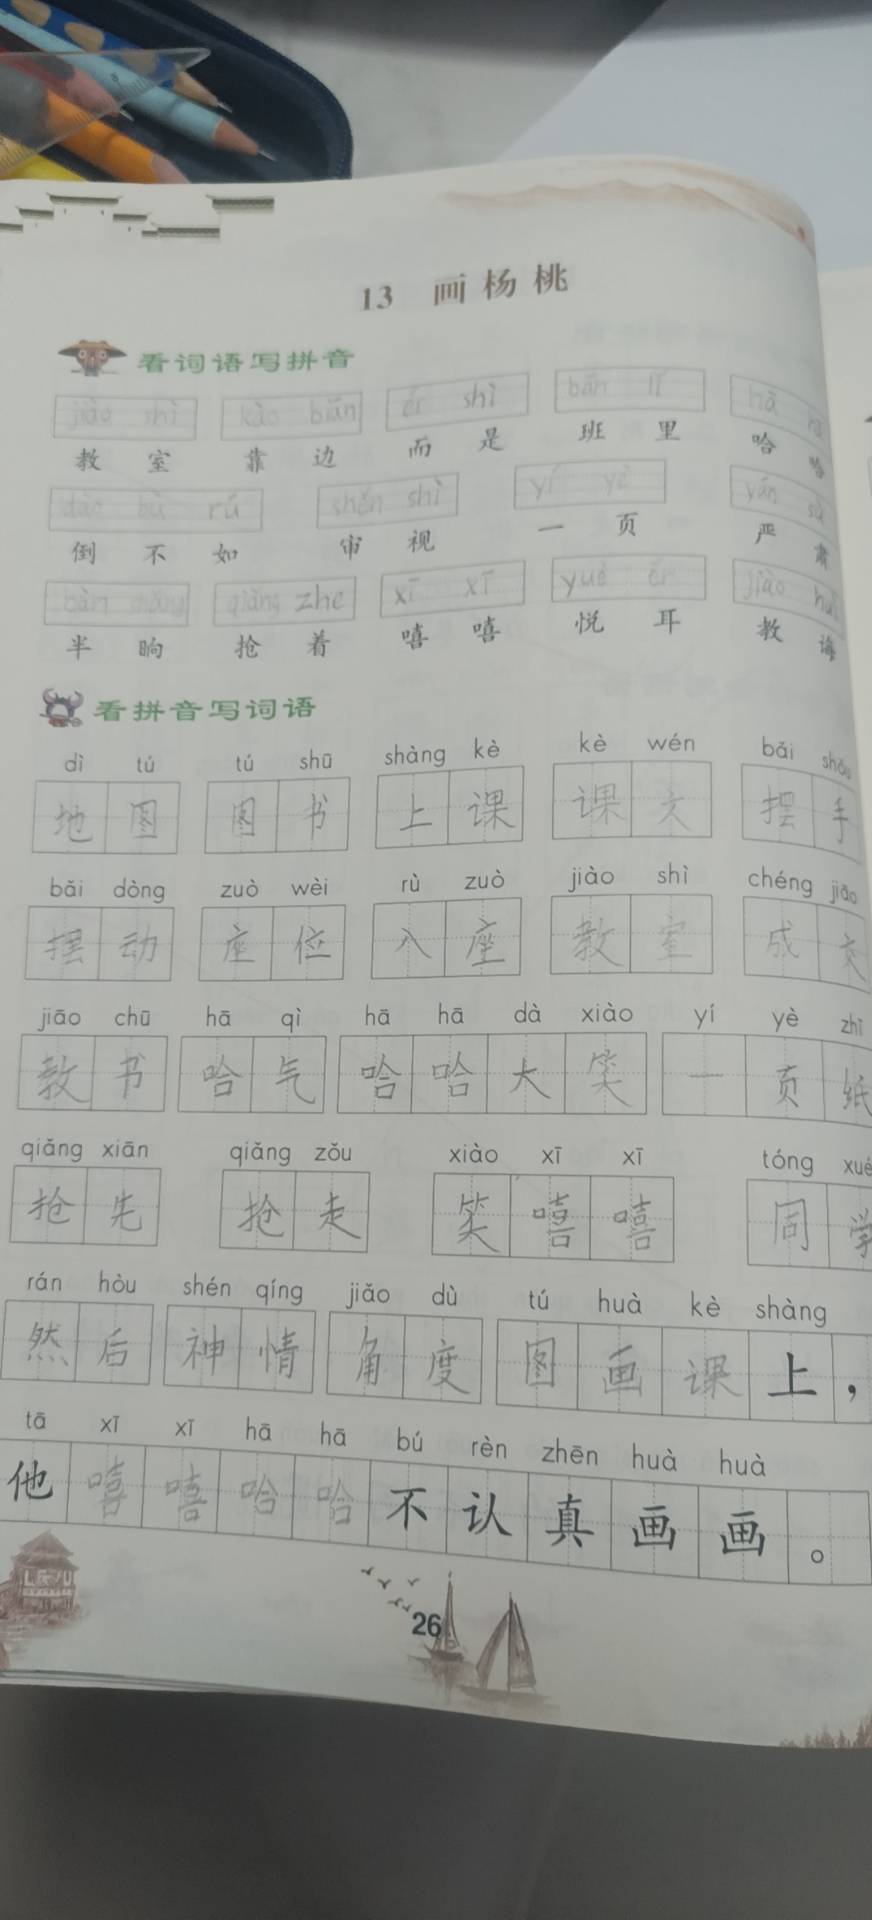 13 画杨桃
看词语写拼音
jiào shì kào biān ér shì bān lǐ hā
教室 靠边 而是 班里 哈哈
dào bù rú shěn shì yí yè yán sù
倒不如 审视 一页 严肃
bàn shǎng qiǎng zhe xī xī yuè ěr jiào huì
半晌 抢着 嘻嘻 悦耳 教诲
看拼音写词语
dì tú tú shū shàng kè kè wén bǎi shǒu
地图 图书 上课 课文 摆手
bǎi dòng zuò wèi rù zuò jiào shì chéng jiāo
摆动 座位 入座 教室 成交
jiāo chū hā qì hā hā dà xiào yí yè zhǐ
教书 哈气 哈哈大笑 一页纸
qiǎng xiān qiǎng zǒu xiào xī xī tóng xué
抢先 抢走 笑嘻嘻 同学
rán hòu shén qíng jiǎo dù tú huà kè shàng
然后 神情 角度 图画课上，
tā xī xī hā hā bú rèn zhēn huà huà
他嘻嘻哈哈不认真画画。
26